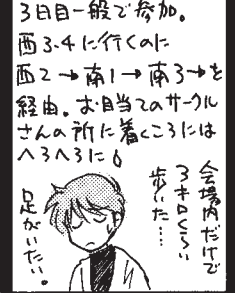 3日目一般で参加。
西3・4に行くのに
西2→南1→南3→を
経由。お目当てのサークル
さんの所に着くころには
へろへろに。
会場内だけで
3キロくらい
歩いた……
足がいたい。